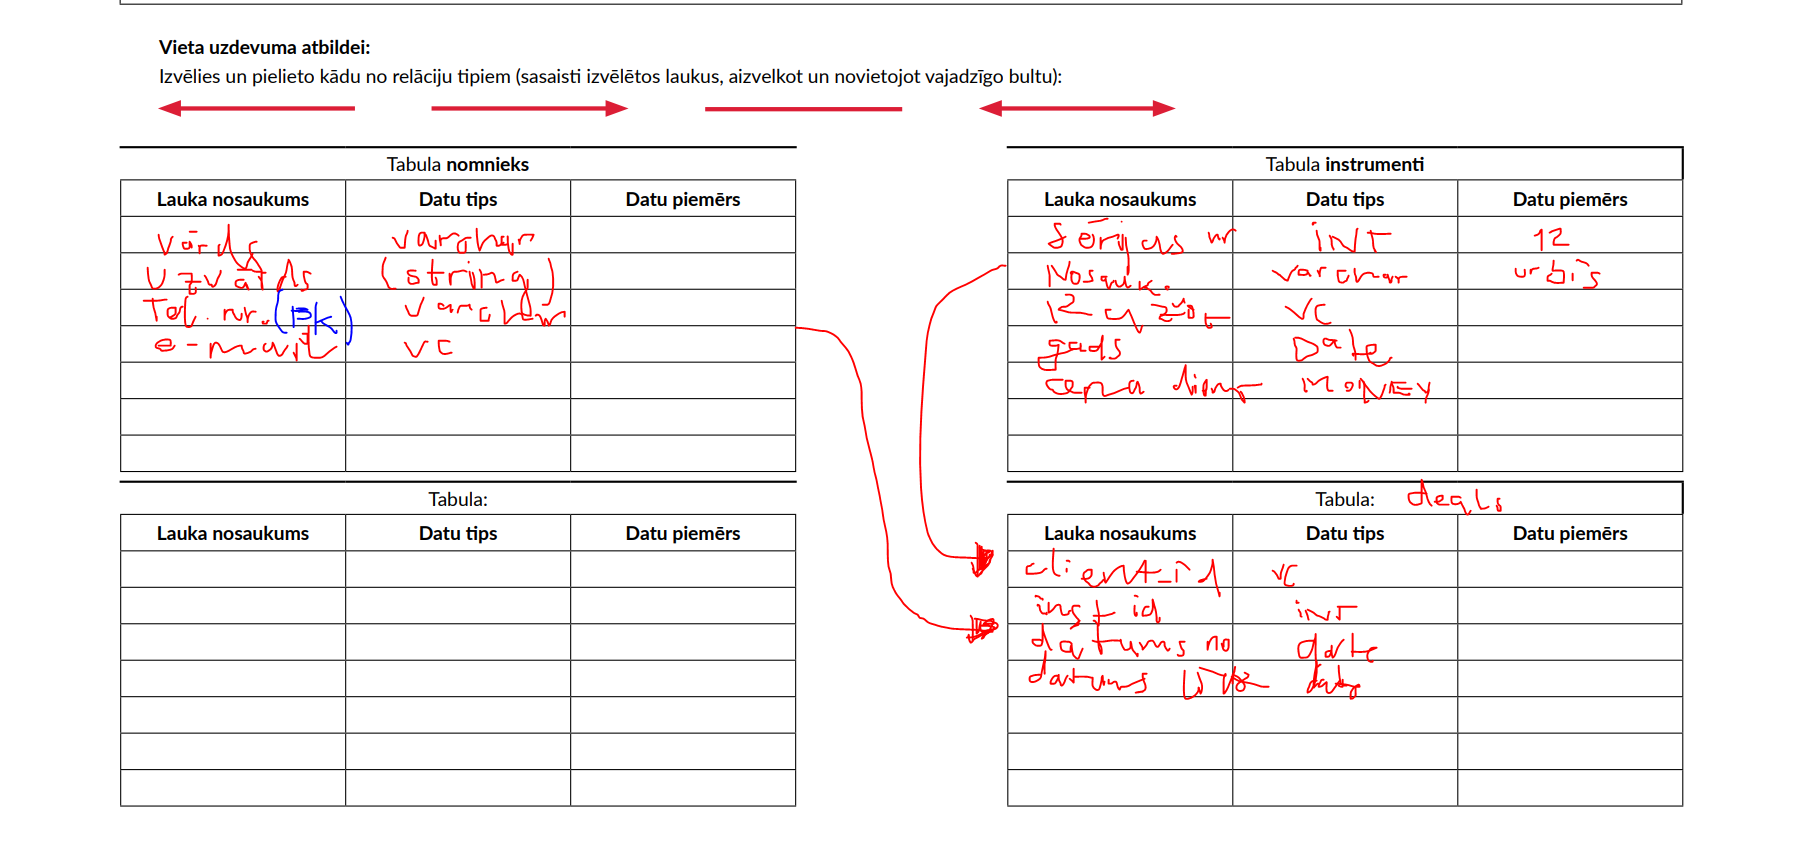 Vieta uzdevuma atbildei:
Izvēlies un pielieto kādu no relāciju tipiem (sasaisti izvēlētos laukus, aizvelkot un novietojot vajadzīgo bultu):
Tabula nomnieks
Lauka nosaukums Datu tips Datu piemērs
Vārds varchar
Uzvārds (string)
Tel. nr. (PK) varchar
e-mail vc
Tabula instrumenti
Lauka nosaukums Datu tips Datu piemērs
Sērijas nr INT 12
Nosauk. varchar urbis
VC
gads Date
cena dienā MONEY
Tabula:
Lauka nosaukums Datu tips Datu piemērs
Tabula: deals
Lauka nosaukums Datu tips Datu piemērs
client_id vc
inst id INT
datums no date
datums līdz date